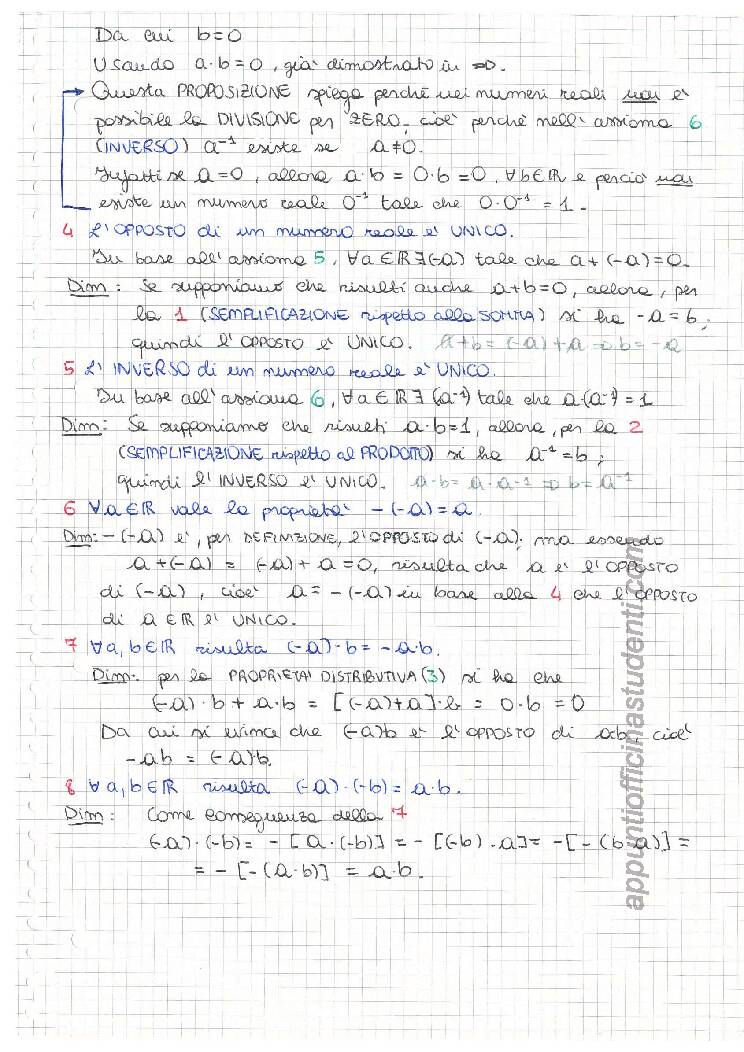 Da cui b=0
Usando a·b=0, già dimostrato in ⇒.
Questa PROPOSIZIONE spiega perché nei numeri reali non è
possibile la DIVISIONE per ZERO, cioè perché nell'assioma 6
(INVERSO) a⁻¹ esiste se a≠0.
Infatti se a=0, allora a·b = 0·b = 0, ∀b∈ℝ e perciò non
esiste un numero reale 0⁻¹ tale che 0·0⁻¹ = 1.
4 L'OPPOSTO di un numero reale è UNICO.
In base all'assioma 5, ∀a∈ℝ ∃(-a) tale che a+(-a)=0.
Dim: Se supponiamo che risulti anche a+b=0, allora, per
la 1 (SEMPLIFICAZIONE rispetto alla SOMMA) si ha -a=b;
quindi l'OPPOSTO è UNICO. a+b=(-a)+a ⇒ b=-a
5 L'INVERSO di un numero reale è UNICO.
In base all'assioma 6, ∀a∈ℝ ∃ (a⁻¹) tale che a·(a⁻¹)=1
Dim: Se supponiamo che risulti a·b=1, allora, per la 2
(SEMPLIFICAZIONE rispetto al PRODOTTO) si ha a⁻¹=b;
quindi l'INVERSO è UNICO. a·b=a·a⁻¹ ⇒ b=a⁻¹
6 ∀a∈ℝ vale la proprietà -(-a)=a.
Dim: -(-a) è, per DEFINIZIONE, l'OPPOSTO di (-a); ma essendo
a+(-a) = (-a)+a=0, risulta che a è l'OPPOSTO
di (-a), cioè a=-(-a) in base alla 4 che l'OPPOSTO
di a∈ℝ è UNICO.
7 ∀a,b∈ℝ risulta (-a)·b=-a·b.
Dim: per la PROPRIETÀ DISTRIBUTIVA (3) si ha che
(-a)·b+a·b = [(-a)+a]·b = 0·b = 0
Da cui si evince che (-a)b è l'OPPOSTO di ab, cioè
-ab = (-a)b.
8 ∀a,b∈ℝ risulta (-a)·(-b)=a·b.
Dim: Come conseguenza della 7
(-a)·(-b)= -[a·(-b)] = -[(-b)·a] = -[-(b·a)] =
= -[-(a·b)] = a·b.
appuntiofficinastudenti.com